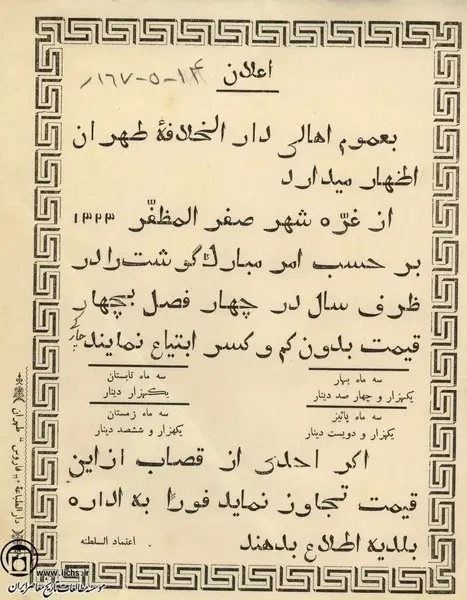 اعلان
۱۶۷-۵-۱۴
بعموم اهالی دار الخلافهٔ طهران
اظهار میدارد
از غرّه شهر صفر المظفّر ۱۳۲۳
بر حسب امر مبارک گوشت را در
ظرف سال در چهار فصل بچهار
قیمت بدون کم و کسر ابتیاع نمایند
سه ماه بهار
یکهزار و چهار صد دینار
سه ماه تابستان
یکهزار دینار
سه ماه پائیز
یکهزار و دویست دینار
سه ماه زمستان
یکهزار و ششصد دینار
اکر احدی از قصاب ازاین
قیمت تجاوز نماید فوراً به اداره
بلدیه اطلاع بدهند
اعتماد السلطنه
دار الطباعهٔ „ فاروس “ طهران
www.iichs.ir
موسسه مطالعات تاریخ معاصر ایران